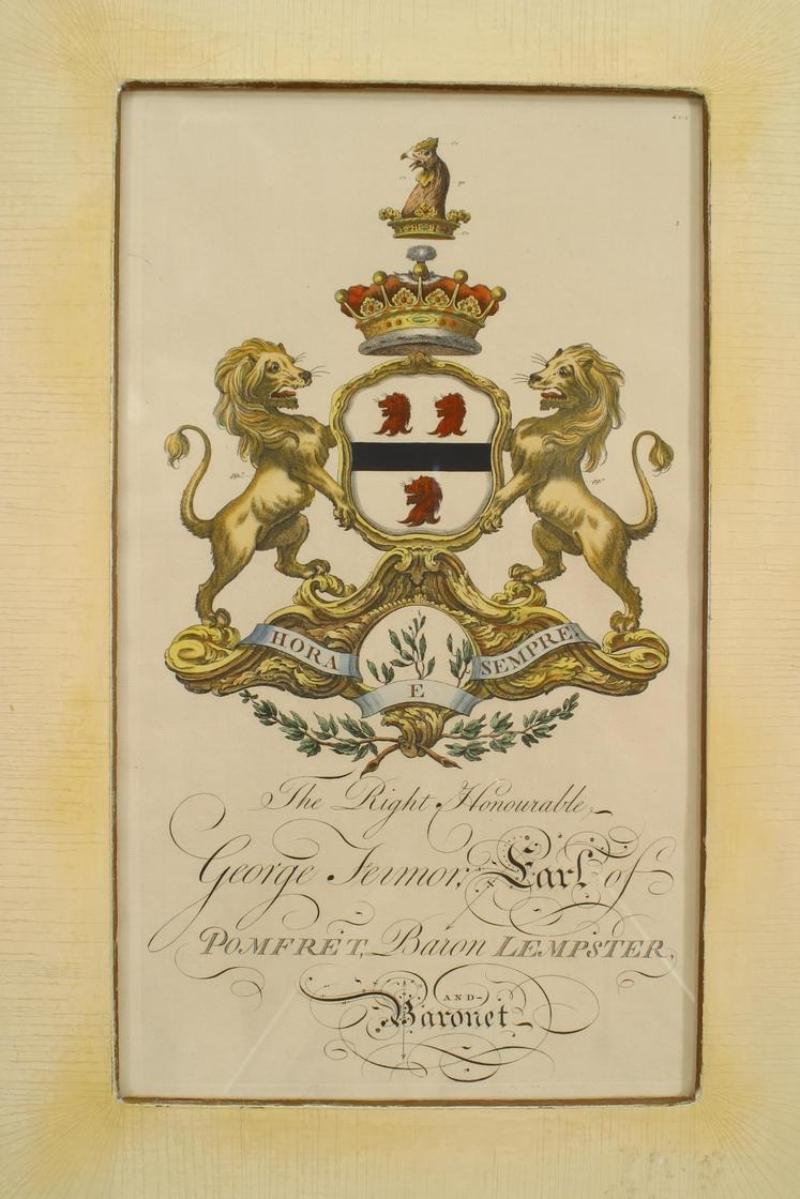 HORA E SEMPRE.
The Right Honourable
George Fermor, Earl of
POMFRET, Baron LEMPSTER,
AND
Baronet